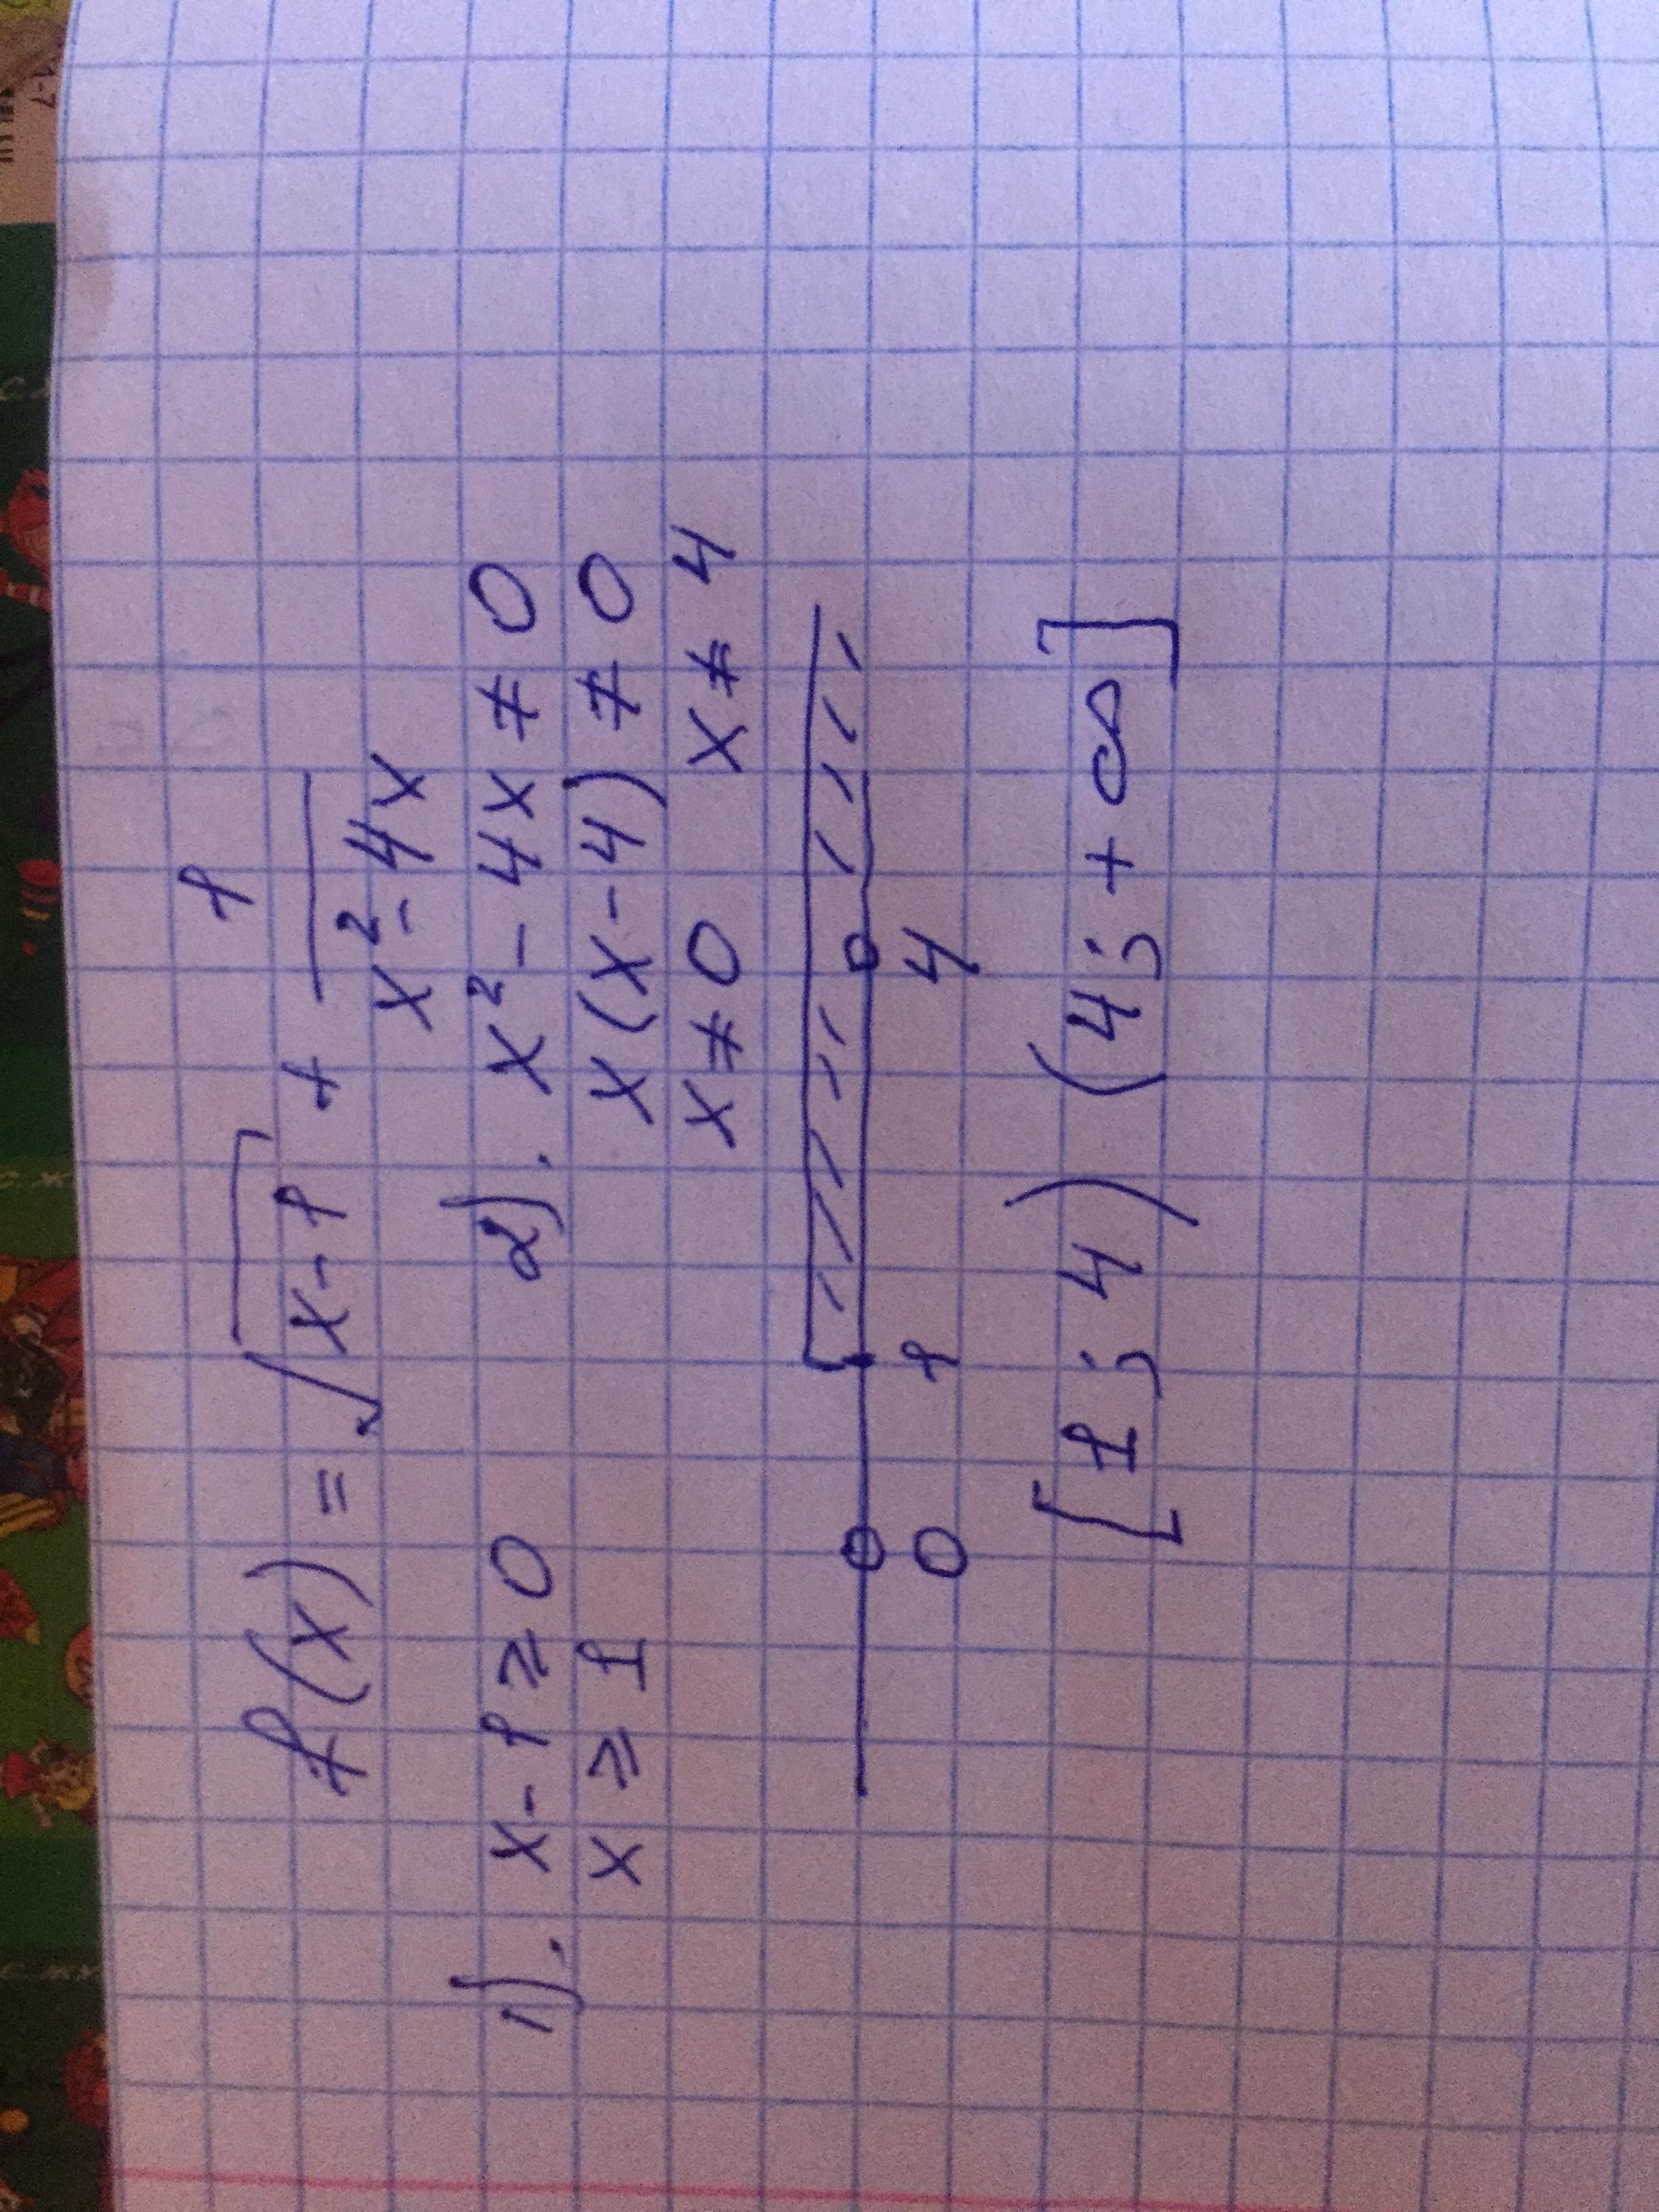 f(x) = √x-1 + 1/x²-4x
1). x-1 ≥ 0 2). x²-4x ≠ 0
x ≥ 1 x(x-4) ≠ 0
x ≠ 0 x ≠ 4
0 1 4
[1; 4) (4; +∞]